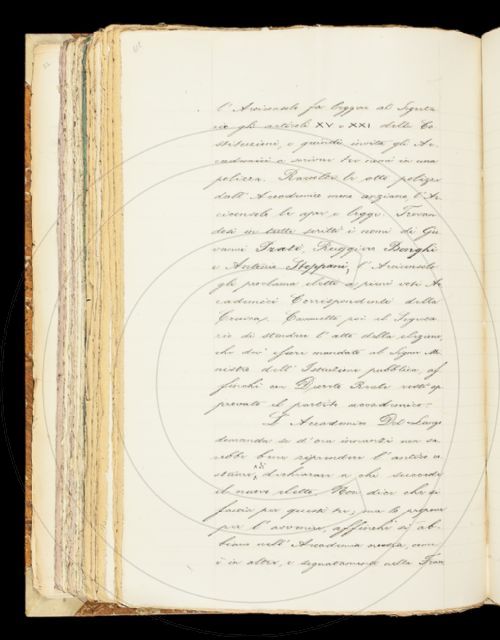 l'Arciconsolo fa leggere al Segreta-
rio gli articoli XV e XXI delle Co-
stituzioni, e quindi invita gli Ac-
cademici a scriver tre nomi in una
polizza. Raccolte le otto polizze
dall'Accademico meno anziano, l'Ar-
ciconsolo le apre e legge. Trovan-
dosi in tutte scritti i nomi di Gio-
vanni Prati, Ruggiero Bonghi
e Antonio Stoppani, l'Arciconsolo
gli proclama eletti a pieni voti Ac-
cademici Corrispondenti della
Crusca. Commette poi al Segreta-
rio di stendere l'atto della elezione,
che dev'essere mandato al Signor Mi-
nistro dell'Istruzione pubblica, af-
finchè con Decreto Reale resti ap-
provato il partito accademico.
L'Accademico Del Lungo
domanda se d'ora innanzi non sa-
rebbe bene riprendere l'antico co-
stume, di dichiarare a chi succeda
il nuovo eletto. Non dice che si
faccia per questi tre; ma lo propone
per l'avvenire, affinchè si ab-
bia nell'Accademia nostra, come
è in altre, e segnatamente nella Fran